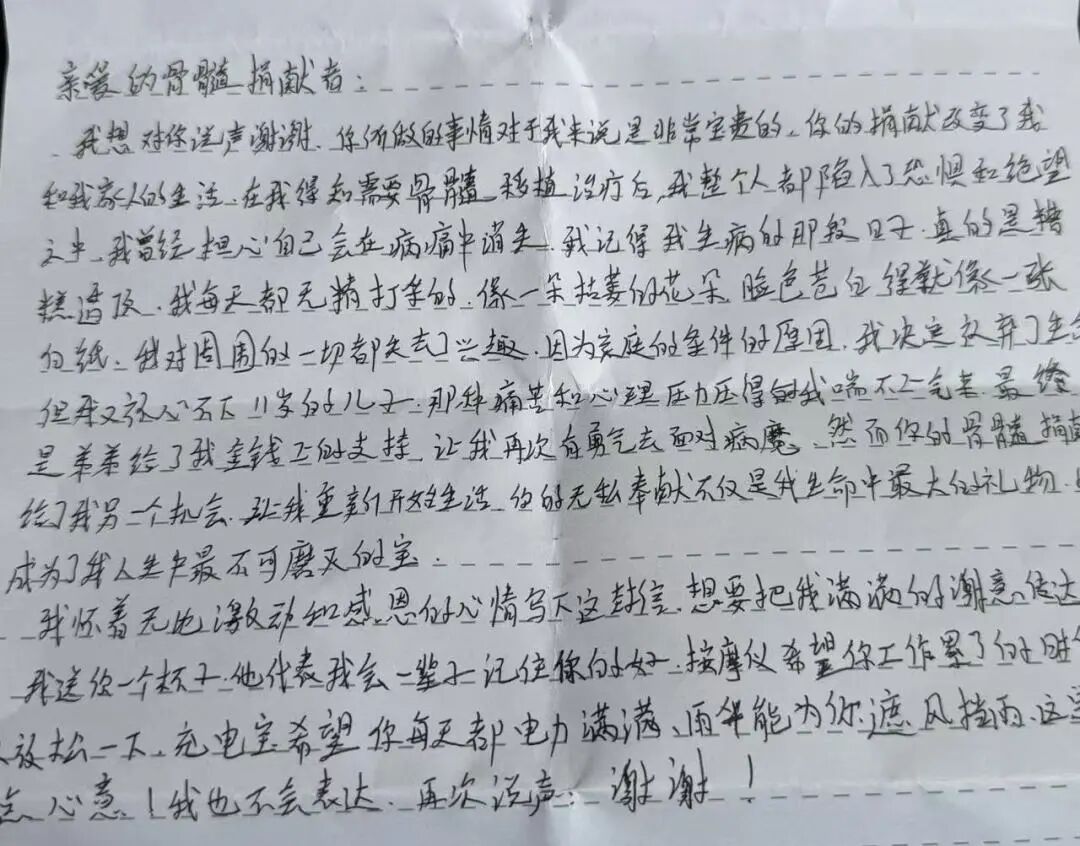 亲爱的骨髓捐献者：
我想对你说声谢谢、你所做的事情对于我来说是非常宝贵的、你的捐献改变了我
和我家人的生活、在我得知需要骨髓移植治疗后、我整个人都陷入了恐惧和绝望
之中、我曾经担心自己会在病痛中消失、我记得我生病的那段日子、真的是糟
糕透顶、我每天都无精打采的、像一朵枯萎的花朵、脸色苍白得就像一张
白纸、我对周围的一切都失去了兴趣、因为家庭的条件的原因、我决定放弃了生
但我又放心不下11岁的儿子、那种痛苦和心理压力压得的我喘不上气来、最终
是弟弟给了我金钱上的支持、让我再次有勇气去面对病魔、然而你的骨髓捐献
给了我另一个机会、让我重新开始生活、你的无私奉献不仅是我生命中最大的礼物、
成为了我人生中最不可磨灭的宝、
我怀着无比激动和感恩的心情写下这封信、想要把我满满的谢意传达
我送你一个杯子、他代表我会一辈子记住你的好、按摩仪希望你工作累了的时
放松一下、充电宝希望你每天都电力满满、雨伞能为你遮风挡雨、这
点心意！我也不会表达、再次说声：谢谢！